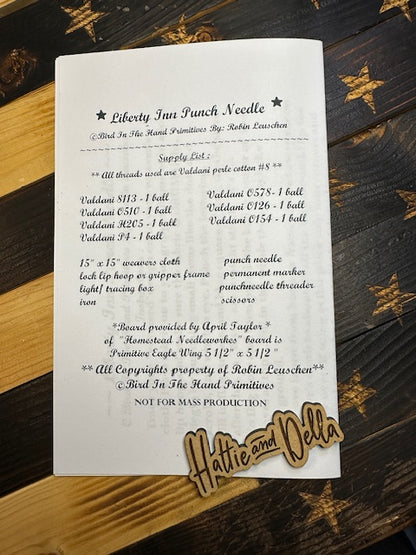 ★ Liberty Inn Punch Needle ★
©Bird In The Hand Primitives By: Robin Leuschen
~~~~~~~~~~~~~~~~~~~~~~~~~~~~~~~~~~~~~~~~
Supply List :
** All threads used are Valdani perle cotton #8 **
Valdani 8113 - 1 ball
Valdani O578- 1 ball
Valdani O510 - 1 ball
Valdani O126 - 1 ball
Valdani H205 - 1 ball
Valdani O154 - 1 ball
Valdani P4 - 1 ball
15" x 15" weavers cloth
punch needle
lock lip hoop or gripper frame
permanent marker
light/ tracing box
punchneedle threader
iron
scissors
*Board provided by April Taylor *
of "Homestead Needleworkes" board is
Primitive Eagle Wing 5 1/2" x 5 1/2 "
** All Copyrights property of Robin Leuschen**
©Bird In The Hand Primitives
NOT FOR MASS PRODUCTION
Hattie and Della